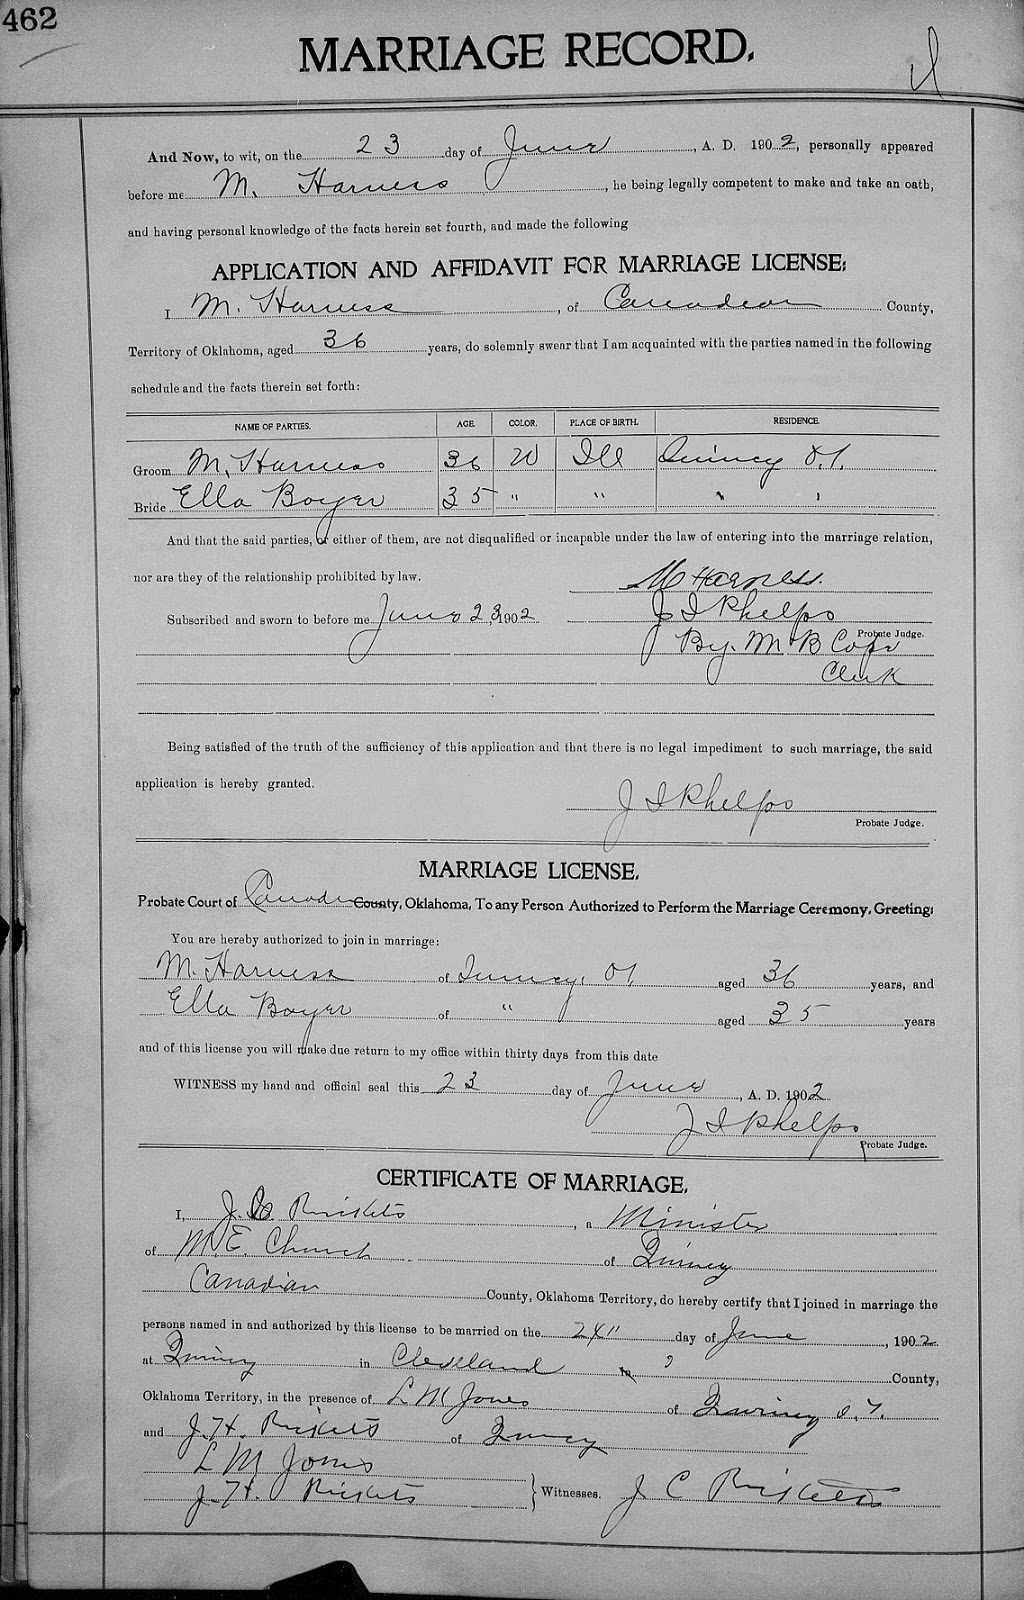 462
MARRIAGE RECORD.
And Now, to wit, on the 23 day of June, A. D. 1902, personally appeared
before me M. Harness, he being legally competent to make and take an oath,
and having personal knowledge of the facts herein set fourth, and made the following
APPLICATION AND AFFIDAVIT FOR MARRIAGE LICENSE:
I M. Harness, of Canadian County,
Territory of Oklahoma, aged 36 years, do solemnly swear that I am acquainted with the parties named in the following
schedule and the facts therein set forth:
NAME OF PARTIES. AGE. COLOR. PLACE OF BIRTH. RESIDENCE.
Groom M. Harness 36 W Ill Quincy O.T.
Bride Ella Boyer 35 " " " "
And that the said parties, or either of them, are not disqualified or incapable under the law of entering into the marriage relation,
nor are they of the relationship prohibited by law. M Harness.
Subscribed and sworn to before me June 23, 1902 J I Phelps
Probate Judge.
By. M B Cope
Clerk
Being satisfied of the truth of the sufficiency of this application and that there is no legal impediment to such marriage, the said
application is hereby granted. J I Phelps
Probate Judge.
MARRIAGE LICENSE.
Probate Court of Canadian County, Oklahoma, To any Person Authorized to Perform the Marriage Ceremony, Greeting:
You are hereby authorized to join in marriage:
M. Harness of Quincy, OT aged 36 years, and
Ella Boyer of " aged 35 years
and of this license you will make due return to my office within thirty days from this date
WITNESS my hand and official seal this 23 day of June, A. D. 1902
J I Phelps
Probate Judge.
CERTIFICATE OF MARRIAGE.
I, J. C. Rickets, a Minister
of M.E. Church of Quincy
Canadian County, Oklahoma Territory, do hereby certify that I joined in marriage the
persons named in and authorized by this license to be married on the day of June, 1902
at Quincy in Cleveland County,
Oklahoma Territory, in the presence of L M Jones of Quincy O.T.
and J. H. Rickets of Quincy
L M Jones
J. H. Rickets } Witnesses. J C Rickets